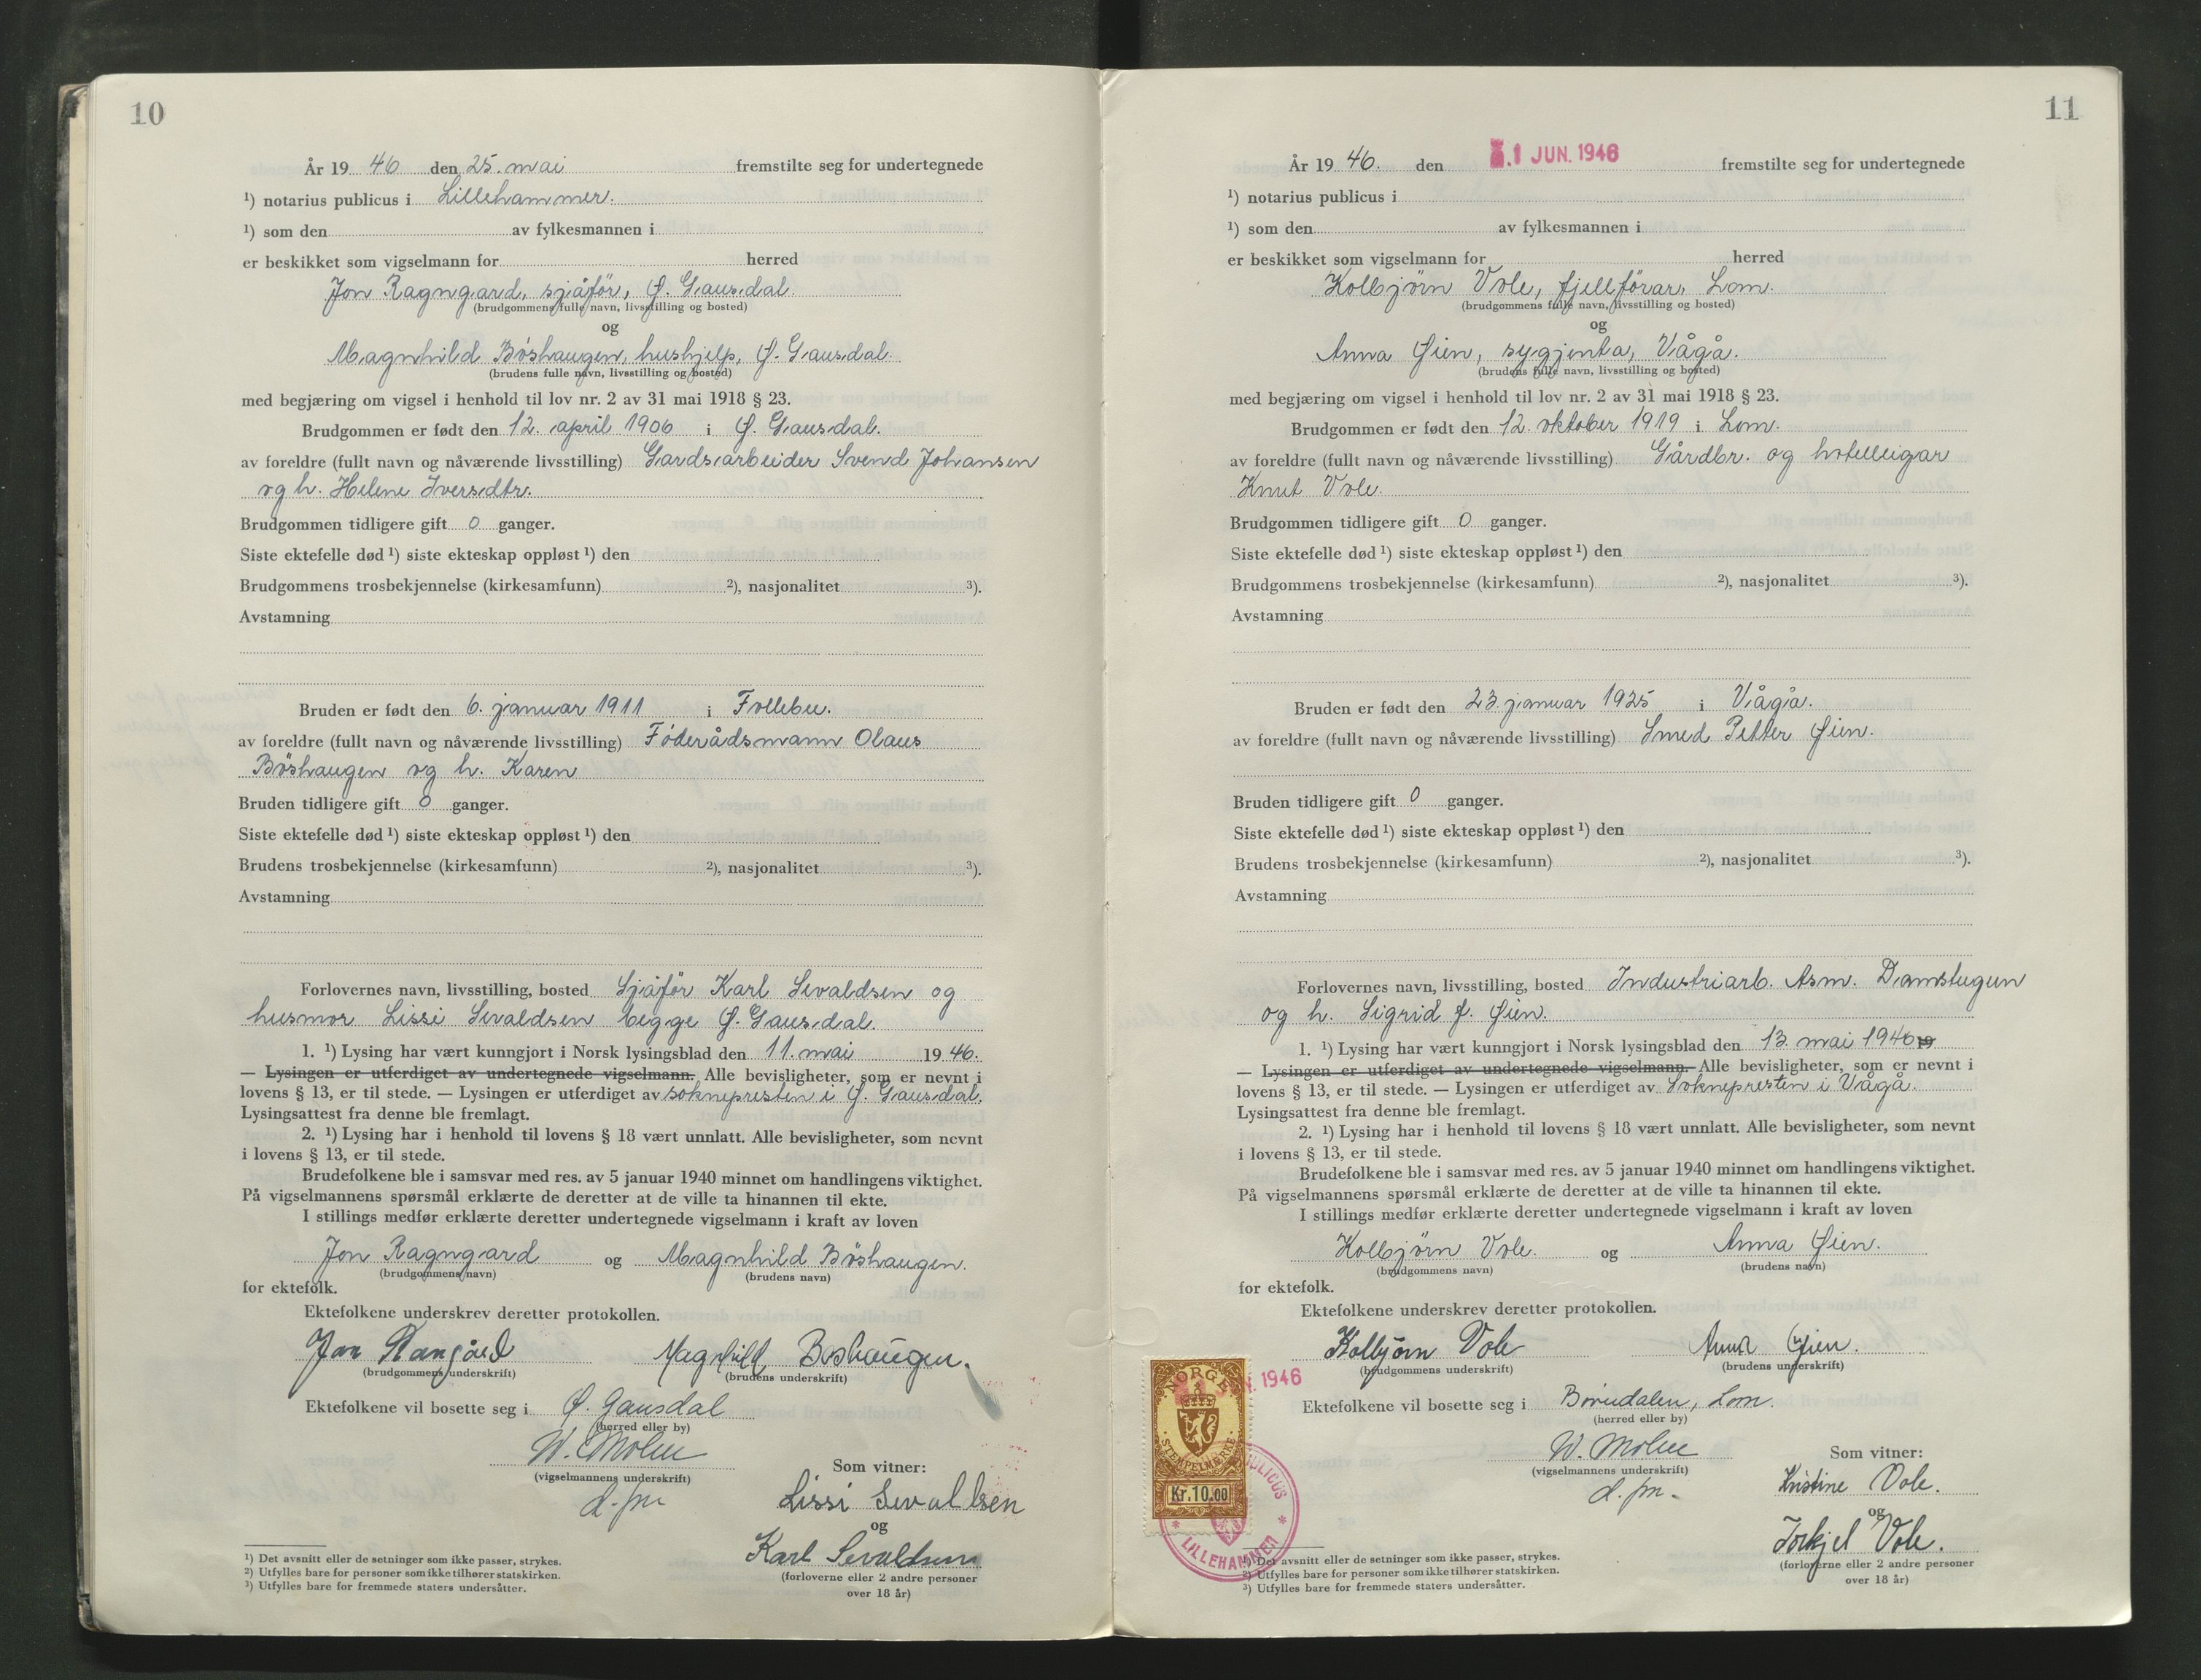 10
År 19 46 den 25. mai fremstilte seg for undertegnede
¹) notarius publicus i Lillehammer.
¹) som den av fylkesmannen i
er beskikket som vigselmann for herred
Jon Ragngard, sjåfør, Ø. Gausdal.
(brudgommens fulle navn, livsstilling og bosted)
og
Magnhild Bøshaugen, hushjelp, Ø. Gausdal.
(brudens fulle navn, livsstilling og bosted)
med begjæring om vigsel i henhold til lov nr. 2 av 31 mai 1918 § 23.
Brudgommen er født den 12. april 1906 i Ø. Gausdal.
av foreldre (fullt navn og nåværende livsstilling) Gardsarbeider Svend Johansen
og h. Helene Iversdtr.
Brudgommen tidligere gift 0 ganger.
Siste ektefelle død ¹) siste ekteskap oppløst ¹) den
Brudgommens trosbekjennelse (kirkesamfunn) ²), nasjonalitet ³).
Avstamning
Bruden er født den 6. januar 1911 i Follebu.
av foreldre (fullt navn og nåværende livsstilling) Føderådsmann Olaus
Bøshaugen og h. Karen
Bruden tidligere gift 0 ganger.
Siste ektefelle død ¹) siste ekteskap oppløst ¹) den
Brudens trosbekjennelse (kirkesamfunn) ²), nasjonalitet ³).
Avstamning
Forlovernes navn, livsstilling, bosted Sjåfør Karl Sevaldsen og
husmor Lissi Sevaldsen begge Ø. Gausdal.
1. ¹) Lysing har vært kunngjort i Norsk lysingsblad den 11. mai 19 46.
— Lysingen er utferdiget av undertegnede vigselmann. Alle bevisligheter, som er nevnt i
lovens § 13, er til stede. — Lysingen er utferdiget av soknepresten i Ø. Gausdal.
Lysingsattest fra denne ble fremlagt.
2. ¹) Lysing har i henhold til lovens § 18 vært unnlatt. Alle bevisligheter, som nevnt
i lovens § 13, er til stede.
Brudefolkene ble i samsvar med res. av 5 januar 1940 minnet om handlingens viktighet.
På vigselmannens spørsmål erklærte de deretter at de ville ta hinannen til ekte.
I stillings medfør erklærte deretter undertegnede vigselmann i kraft av loven
Jon Ragngard og Magnhild Bøshaugen.
(brudgommens navn) (brudens navn)
for ektefolk.
Ektefolkene underskrev deretter protokollen.
Jon Magnhild Bøshaugen.
(brudgommens underskrift) (brudens underskrift)
Ektefolkene vil bosette seg i Ø. Gausdal
(herred eller by)
W. Molne
(vigselmannens underskrift)
d. fm.
Som vitner:
Lissi Sevaldsen
og
Karl Sevaldsen
(forloverne eller 2 andre personer
over 18 år)
¹) Det avsnitt eller de setninger som ikke passer, strykes.
²) Utfylles bare for personer som ikke tilhører statskirken.
³) Utfylles bare for fremmede staters undersåtter.
11
År 19 46. den 1 JUN. 1946 fremstilte seg for undertegnede
¹) notarius publicus i
¹) som den av fylkesmannen i
er beskikket som vigselmann for herred
Kolbjørn Vole, fjellførar, Lom.
(brudgommens fulle navn, livsstilling og bosted)
og
Anna Øien, sygjenta, Vågå.
(brudens fulle navn, livsstilling og bosted)
med begjæring om vigsel i henhold til lov nr. 2 av 31 mai 1918 § 23.
Brudgommen er født den 12. oktober 1919 i Lom.
av foreldre (fullt navn og nåværende livsstilling) Gårdbr. og hotelleigar
Knut Vole.
Brudgommen tidligere gift 0 ganger.
Siste ektefelle død ¹) siste ekteskap oppløst ¹) den
Brudgommens trosbekjennelse (kirkesamfunn) ²), nasjonalitet ³).
Avstamning
Bruden er født den 23. januar 1925 i Vågå.
av foreldre (fullt navn og nåværende livsstilling) Smed Petter Øien.
Bruden tidligere gift 0 ganger.
Siste ektefelle død ¹) siste ekteskap oppløst ¹) den
Brudens trosbekjennelse (kirkesamfunn) ²), nasjonalitet ³).
Avstamning
Forlovernes navn, livsstilling, bosted Industriarb. Asm. Damstugun
og h. Sigrid f. Øien.
1. ¹) Lysing har vært kunngjort i Norsk lysingsblad den 13. mai 1946 19
— Lysingen er utferdiget av undertegnede vigselmann. Alle bevisligheter, som er nevnt i
lovens § 13, er til stede. — Lysingen er utferdiget av soknepresten i Vågå.
Lysingsattest fra denne ble fremlagt.
2. ¹) Lysing har i henhold til lovens § 18 vært unnlatt. Alle bevisligheter, som nevnt
i lovens § 13, er til stede.
Brudefolkene ble i samsvar med res. av 5 januar 1940 minnet om handlingens viktighet.
På vigselmannens spørsmål erklærte de deretter at de ville ta hinannen til ekte.
I stillings medfør erklærte deretter undertegnede vigselmann i kraft av loven
Kolbjørn Vole. og Anna Øien.
(brudgommens navn) (brudens navn)
for ektefolk.
Ektefolkene underskrev deretter protokollen.
Kolbjørn Vole Anna Øien.
(brudgommens underskrift) (brudens underskrift)
1946
NORGE
STEMPELMERKE
Kr. 10.00
LILLEHAMMER
Ektefolkene vil bosette seg i Bøverdalen, Lom.
(herred eller by)
W. Molne
(vigselmannens underskrift)
d. fm.
Som vitner:
Kristine Vole.
og
Torkjel Vole.
(forloverne eller 2 andre personer
over 18 år)
¹) Det avsnitt eller de setninger som ikke passer, strykes.
²) Utfylles bare for personer som ikke tilhører statskirken.
³) Utfylles bare for fremmede staters undersåtter.